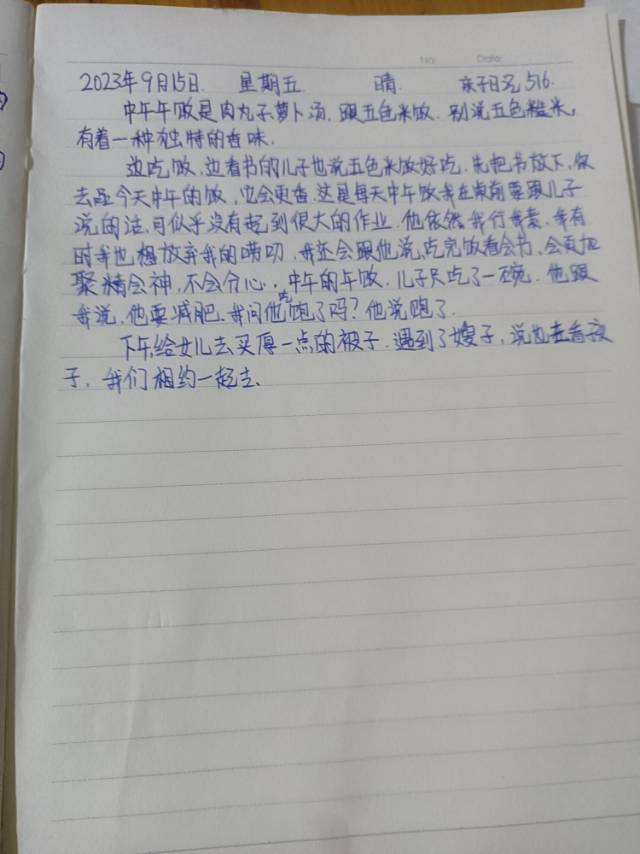 No:  Date:
2023年9月15日. 星期五 晴 亲子日记516.
中午午饭是肉丸子萝卜汤, 跟五色米饭. 别说五色糙米,
有着一种独特的香味.
边吃饭, 边看书的儿子也说五色米饭好吃. 先把书放下, 你
去品今天中午的饭, 它会更香. 这是每天中午饭我在桌前要跟儿子
说的话. 可似乎没有起到很大的作业. 他依然我行我素. 我有
时我也想放弃我的唠叨. 我还会跟他说, 吃完饭看会书, 会更加
聚精会神, 不会分心. 中午的午饭, 儿子只吃了一碗. 他跟
我说, 他要减肥. 我问他吃饱了吗? 他说饱了.
下午, 给女儿去买厚一点的被子. 遇到了嫂子, 说也去看孩
子. 我们相约一起去.